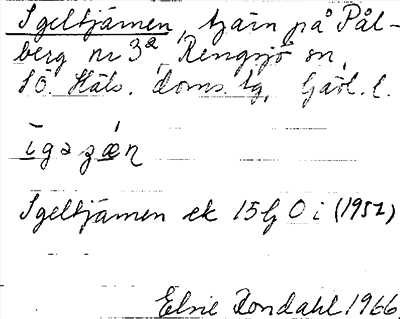 Igeltjärnen, tjärn på Pål-
berg nr 3a, Rengsjö sn,
SÖ. Häls. doms. tg, Gävl. l.
Igeltjärnen ek 15G 0i (1957)
Elsie Rondahl 1966